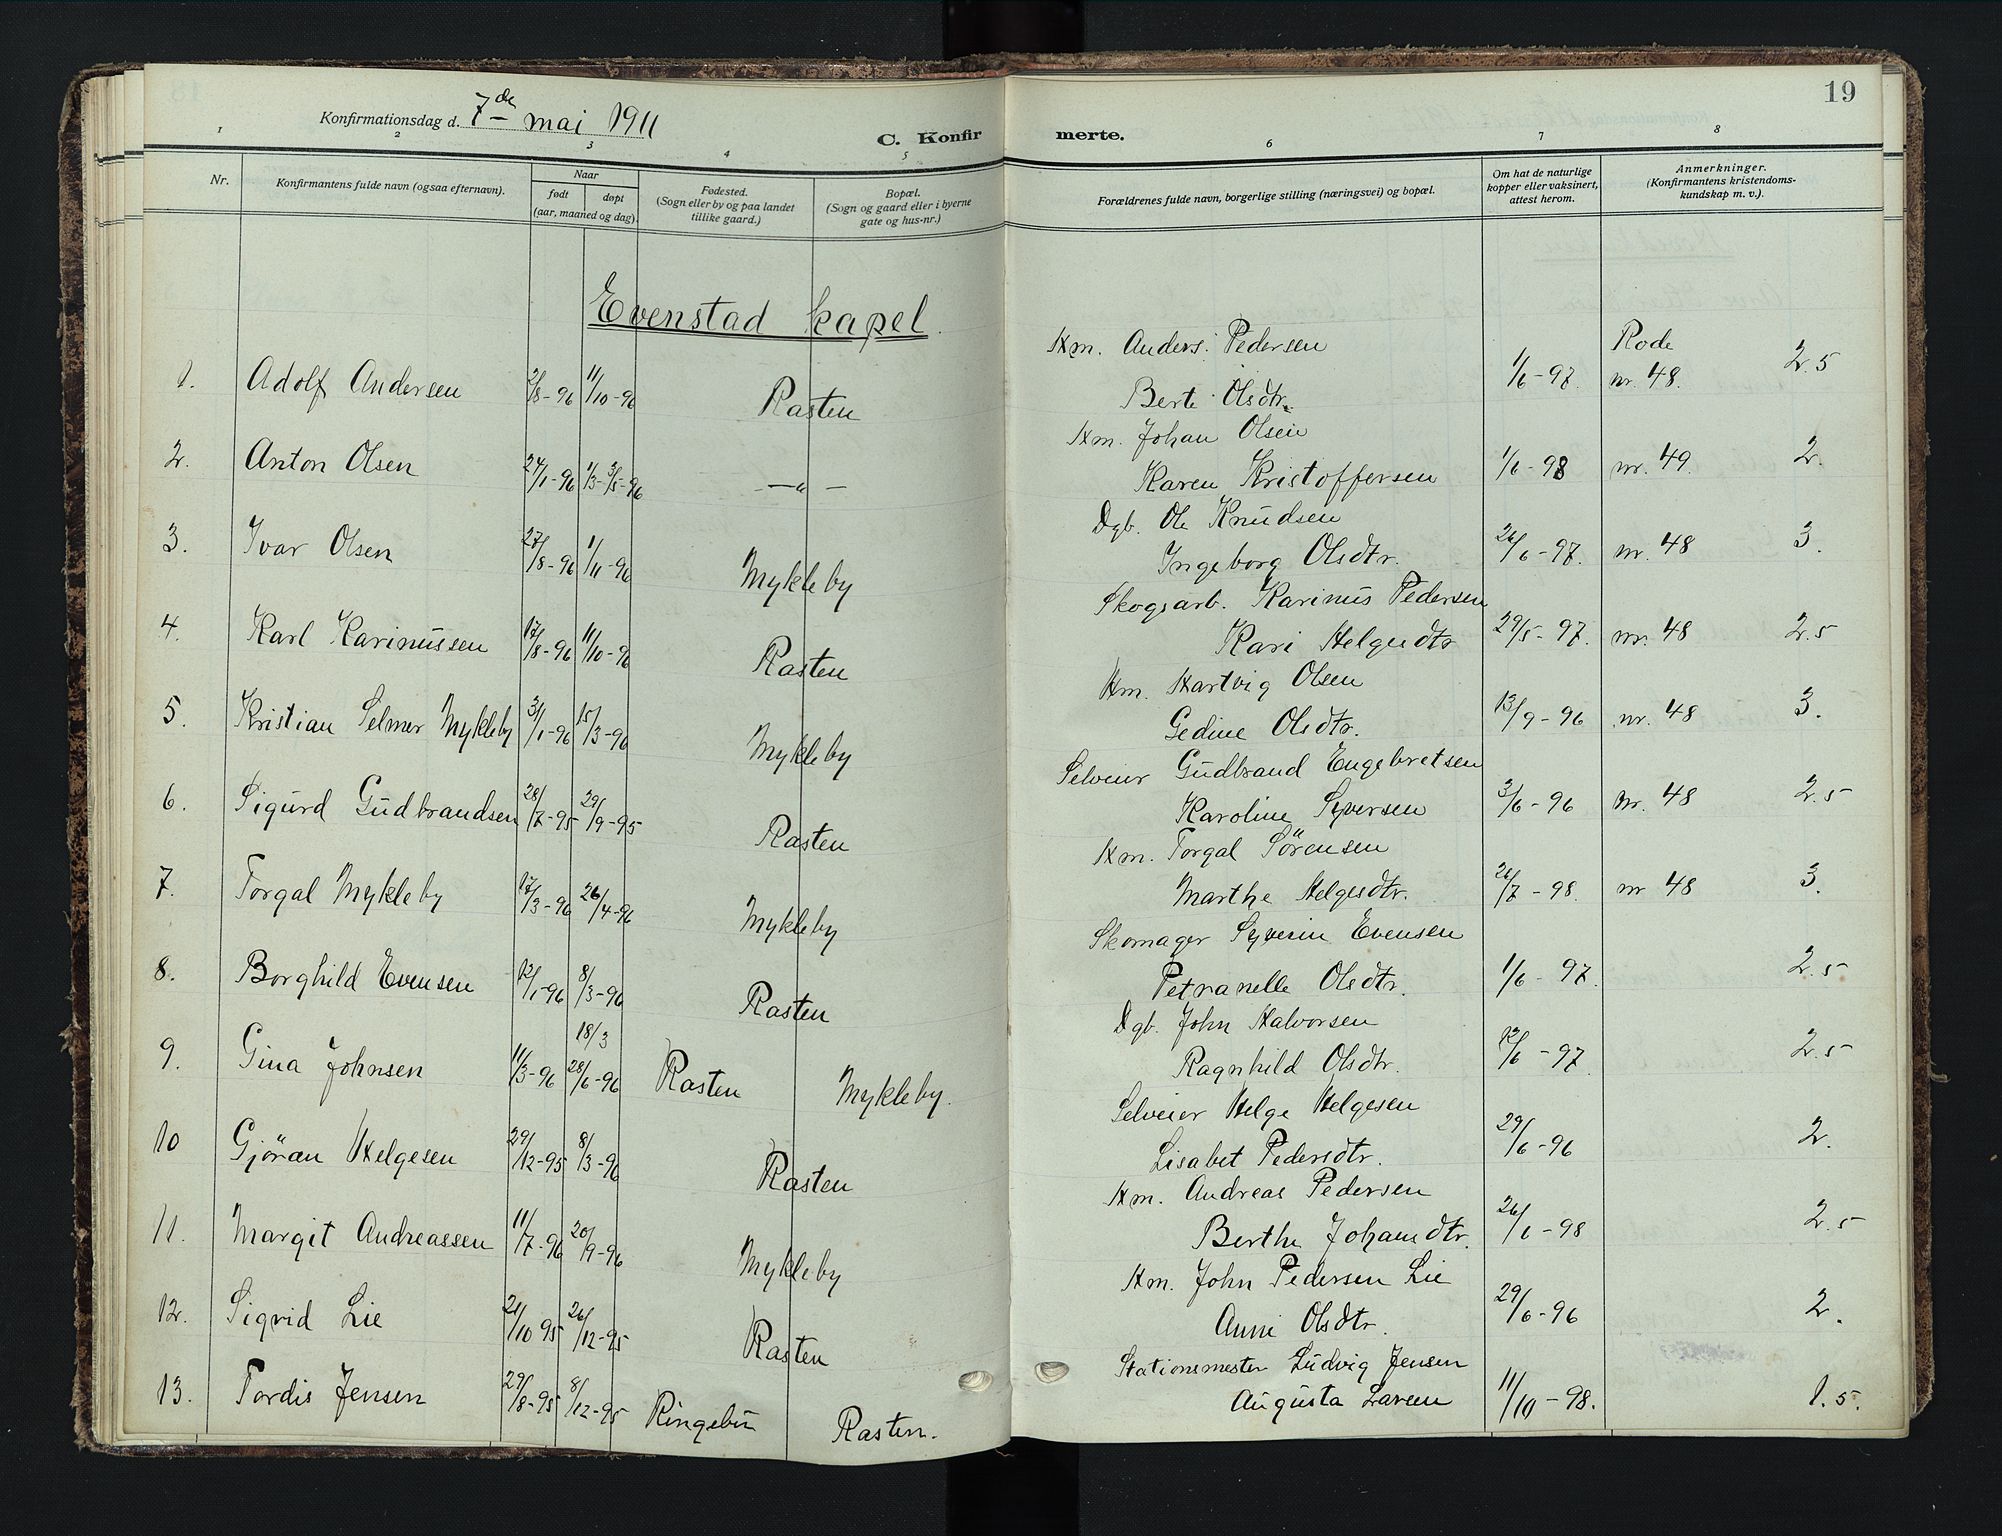 19
Konfirmationsdag d. 7de mai 1911
C. Konfirmerte.
1 2 3 4 5 6 7 8
Nr. Konfirmantens fulde navn (ogsaa efternavn). Naar født døpt (aar, maaned og dag). Fødested. (Sogn eller by og paa landet tillike gaard.) Bopæl. (Sogn og gaard eller i byerne gate og hus-nr.) Forældrenes fulde navn, borgerlige stilling (næringsvei) og bopæl. Om hat de naturlige kopper eller vaksinert, attest herom. Anmerkninger. (Konfirmantens kristendomskundskap m. v.).
Evenstad kapel.
Km. Anders Pedersen Rode
1. Adolf Andersen 2/8-96 11/10-96 Rasten Berte Olsdtr. 1/6-97. nr. 48. 2.5
Km. Johan Olsen
2. Anton Olsen 24/1-96 1/3-3/5-96 —"— Karen Kristoffersen 1/6-98 nr. 49. 2.
Dgb. Ole Knudsen
3. Ivar Olsen 27/8-96 1/11-96 Mykleby Ingeborg Olsdtr. 26/6-97. nr. 48 3.
Skogsarb. Karinus Pedersen
4. Karl Karinussen 17/8-96 11/10-96 Rasten Kari Helgesdtr 29/5-97. nr. 48 2.5
Km. Hartvig Olsen
5. Kristian Selmer Mykleby 3/1-96 15/3-96 Mykleby Gedine Olsdtr. 13/9-96 nr. 48 3.
Selveier Gudbrand Engebretsen
6. Sigurd Gudbrandsen 28/7-95 29/9-95 Rasten Karoline Syversen 3/6-96 nr. 48 2.5
Km. Torgal Sörensen
7. Torgal Mykleby 17/3-96 26/4-96 Mykleby Marthe Helgesdtr. 26/7-98. nr 48 3.
Skomager Syverin Evensen
8. Borghild Evensen 12/1-96 8/3-96 Rasten Petranelle Olsdtr. 1/6-97. 2.5
18/3 Dgb. John Halvorsen
9. Gina Johnsen 11/3-96 28/6-96 Rasten Mykleby. Ragnhild Olsdtr. 12/6-97 2.5
Selveier Helge Helgesen
10 Gjöran Helgesen 29/12-95 8/3-96 Rasten Lisabet Pedersdtr. 29/6-96 2.
Km. Andreas Pedersen
11. Margit Andreassen 11/7-96 20/9-96 Mykleby Berthe Johansdtr. 26/6-98 2.5
Km. John Pedersen Lie
12. Sigrid Lie 21/10 95 26/12-95 Rasten Anne Olsdtr. 29/6-96 2.
Stationsmester Ludvig Jensen
13. Tordis Jensen 29/8-95 8/12-95 Ringebu Rasten. Augusta Larsen 11/10-98. 1.5.